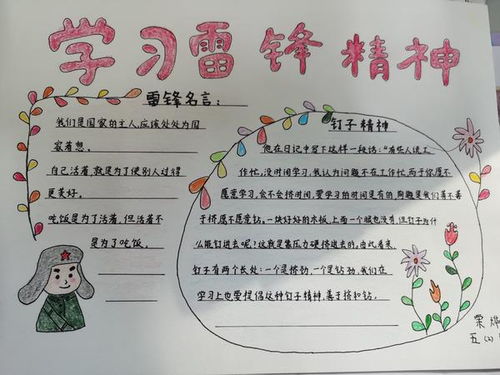 学习雷锋精神
雷锋名言：
我们是国家的主人，应该处处为国
家着想。
自己活着，就是为了使别人过得
更美好。
吃饭是为了活着，但活着不
是为了吃饭。
钉子精神
他在日记中写下这样一段话："有些人说工
作忙，没时间学习，我认为问题不在工作忙，而于你愿不
愿意学习，会不会挤时间，要学习的时间是有的，问题是我们善不善
于挤，愿不愿意钻，一块好好的木板，上面一个眼也没有，但钉子为什
么能钉进去呢？这就是靠压力硬挤进去的，由此看来，
钉子有两个长处：一个是挤劲，一个是钻劲，我们在
学习上也要提倡这种钉子精神，善于挤和钻。
栗
五（